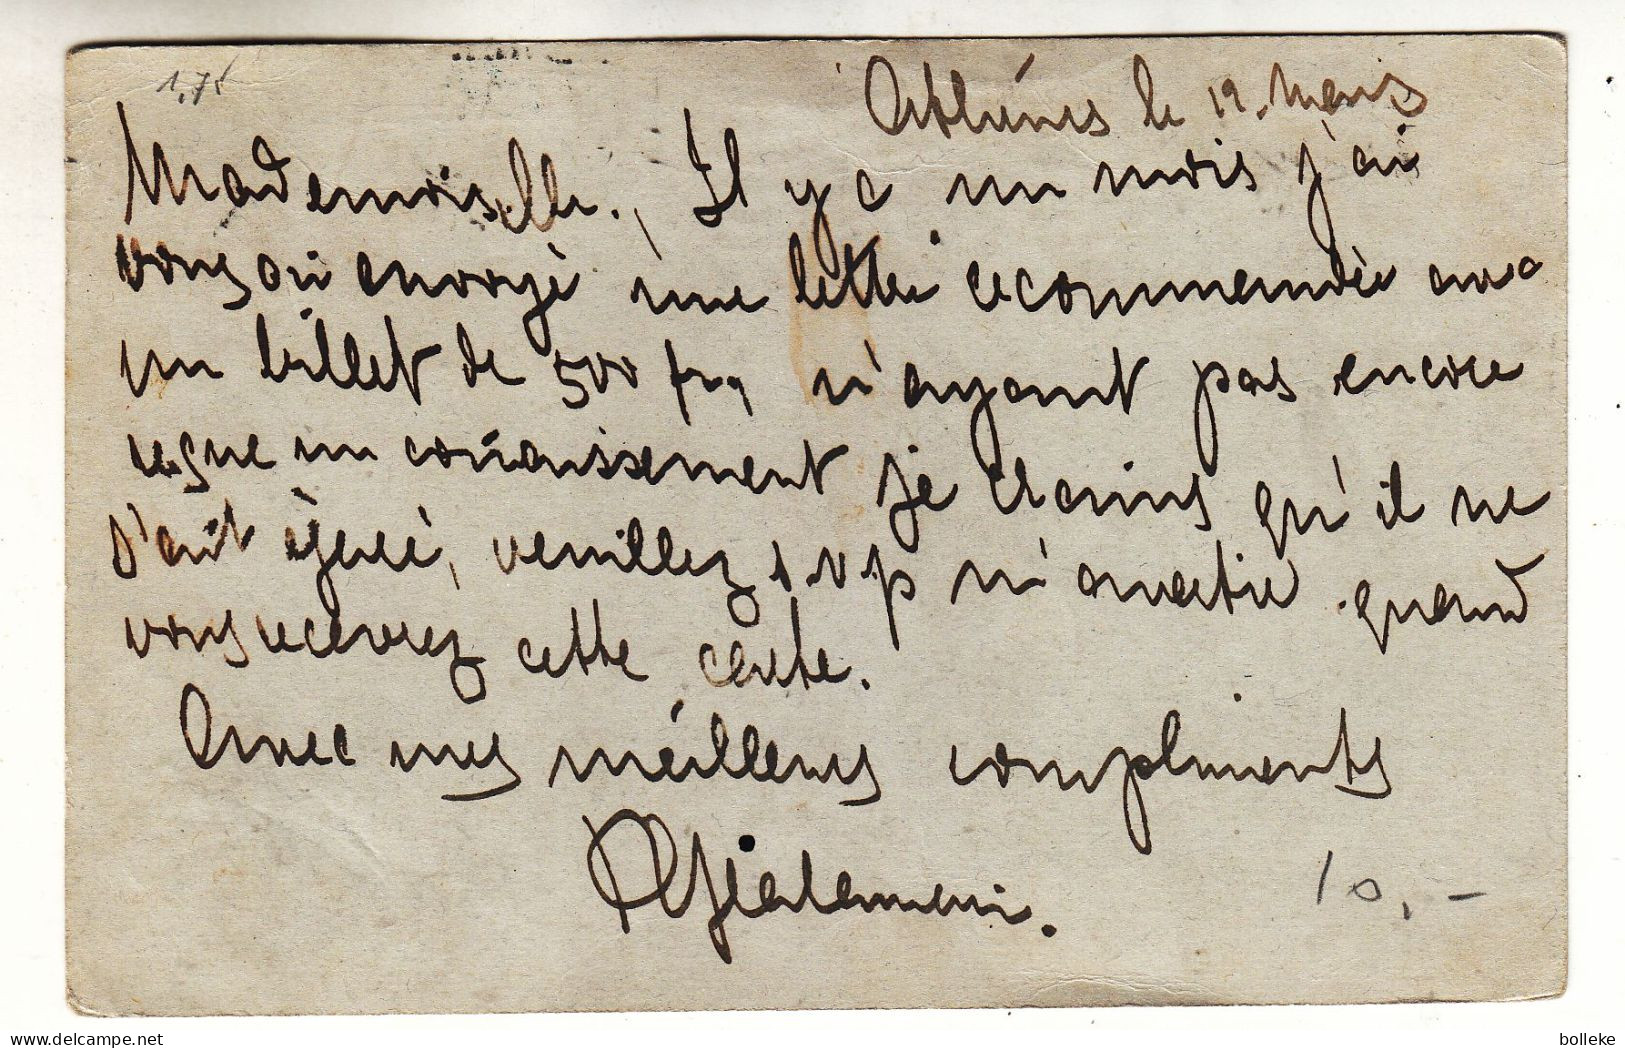 1,75
Athènes le 19 Mars
Mademoiselle., Il y a un mois j'ai
vous ai envoyé une lettre recommandée avec
un billet de 500 frs, n'ayant pas encore
reçue un conaissement je crains qu'il ne
s'ait égaré, veuillez s.v.p m'avertir quand
vous recevrez cette carte.
Avec mes meilleurs compliments
10,-
bolleke